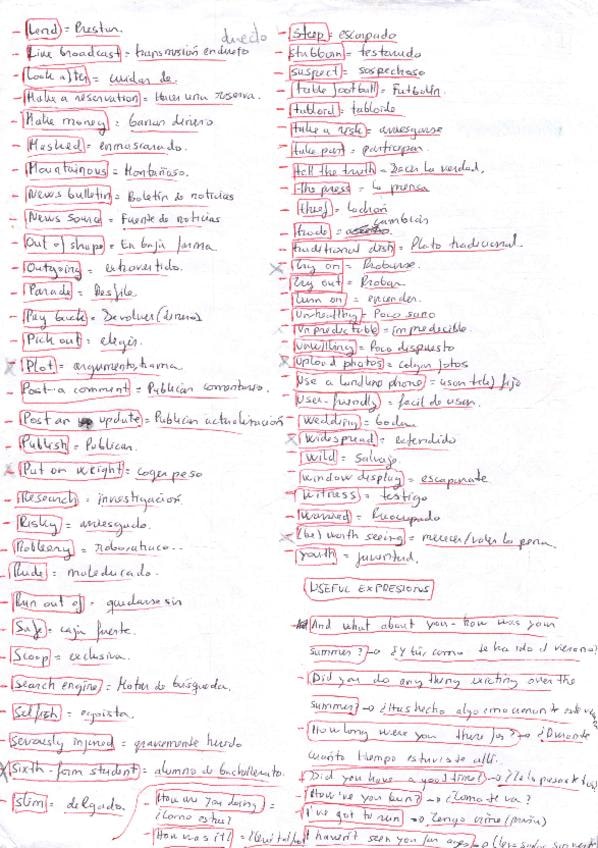 - Lend = Prestar.
- Live broadcast = transmisión en directo
directo
- Look after = cuidar de.
- Make a reservation = Hacer una reserva.
- Make money = Ganar dinero
- Masked = enmascarado.
- Mountainous = Montañoso.
- News bulletin = Boletín de noticias
- News source = Fuente de noticias
- Out of shape = En baja forma
- Outgoing = extrovertido.
- Parade = Desfile.
- Pay back = Devolver (dinero)
- Pick out = elegir.
- Plot = argumento, trama
- Post a comment = Publicar comentario.
- Post an update = Publicar actualización
- Publish = Publicar.
- Put on weight = coger peso
- Research = investigación
- Risky = arriesgado.
- Robbery = Robo, atraco..
- Rude = maleducado.
- Run out of = quedarse sin
- Safe = caja fuerte.
- Scoop = exclusiva.
- Search engine = Motor de búsqueda.
- Selfish = egoista.
- Seriously injured = gravemente herido
- Sixth-form student = alumno de bachillerato.
- Slim = delgado.
- How are you doing =
¿Como estas?
- How was it? =
- Steep = escarpado
- Stubborn = testarudo
- suspect = sospechoso
- table football = Futbolín.
- tabloid = tabloide
- take a risk = arriesgarse
- take part = participar.
- tell the truth = Decir la verdad.
- the press = la prensa
- thief = ladrón
- trade = cambiar
- traditional dish = Plato tradicional.
- try on = Probarse.
- try out = Probar
- turn on = encender.
- unhealthy = Poco sano
- unpredictable = impredecible.
- unwilling = Poco dispuesto
- upload photos = colgar fotos
- use a landline phone = usar telf fijo
- user-friendly = facil de usar.
- wedding = boda
- widespread = extendido
- wild = salvaje.
- window display = escaparate.
- witness = testigo
- worried = Preocupado
- (be) worth seeing = merecer/valer la pena.
- youth = juventud.
USEFUL EXPRESIONS
- And what about you - how was your
summer? → ¿Y tú, como te ha ido el verano?
- Did you do anything exciting over the
summer? → ¿Has hecho algo emocionante este
- How long were you there for? → ¿Durante
cuanto tiempo estuviste alli.
- Did you have a good time? →
- How've you been? → ¿Como te va?
- I've got to run → Tengo irme
- I haven't seen you for ages →